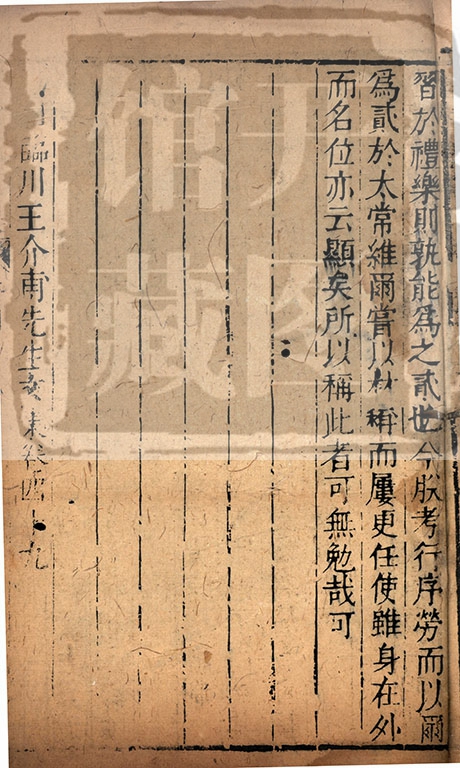 習於禮樂則孰能為之貳也今朕考行序勞而以爾
為貳於太常維爾嘗以材稱而屢更任使雖身在外
而名位亦云顯矣所以稱此者可無勉哉可
臨川王介甫先生文集卷四十九
开
图
馆
藏